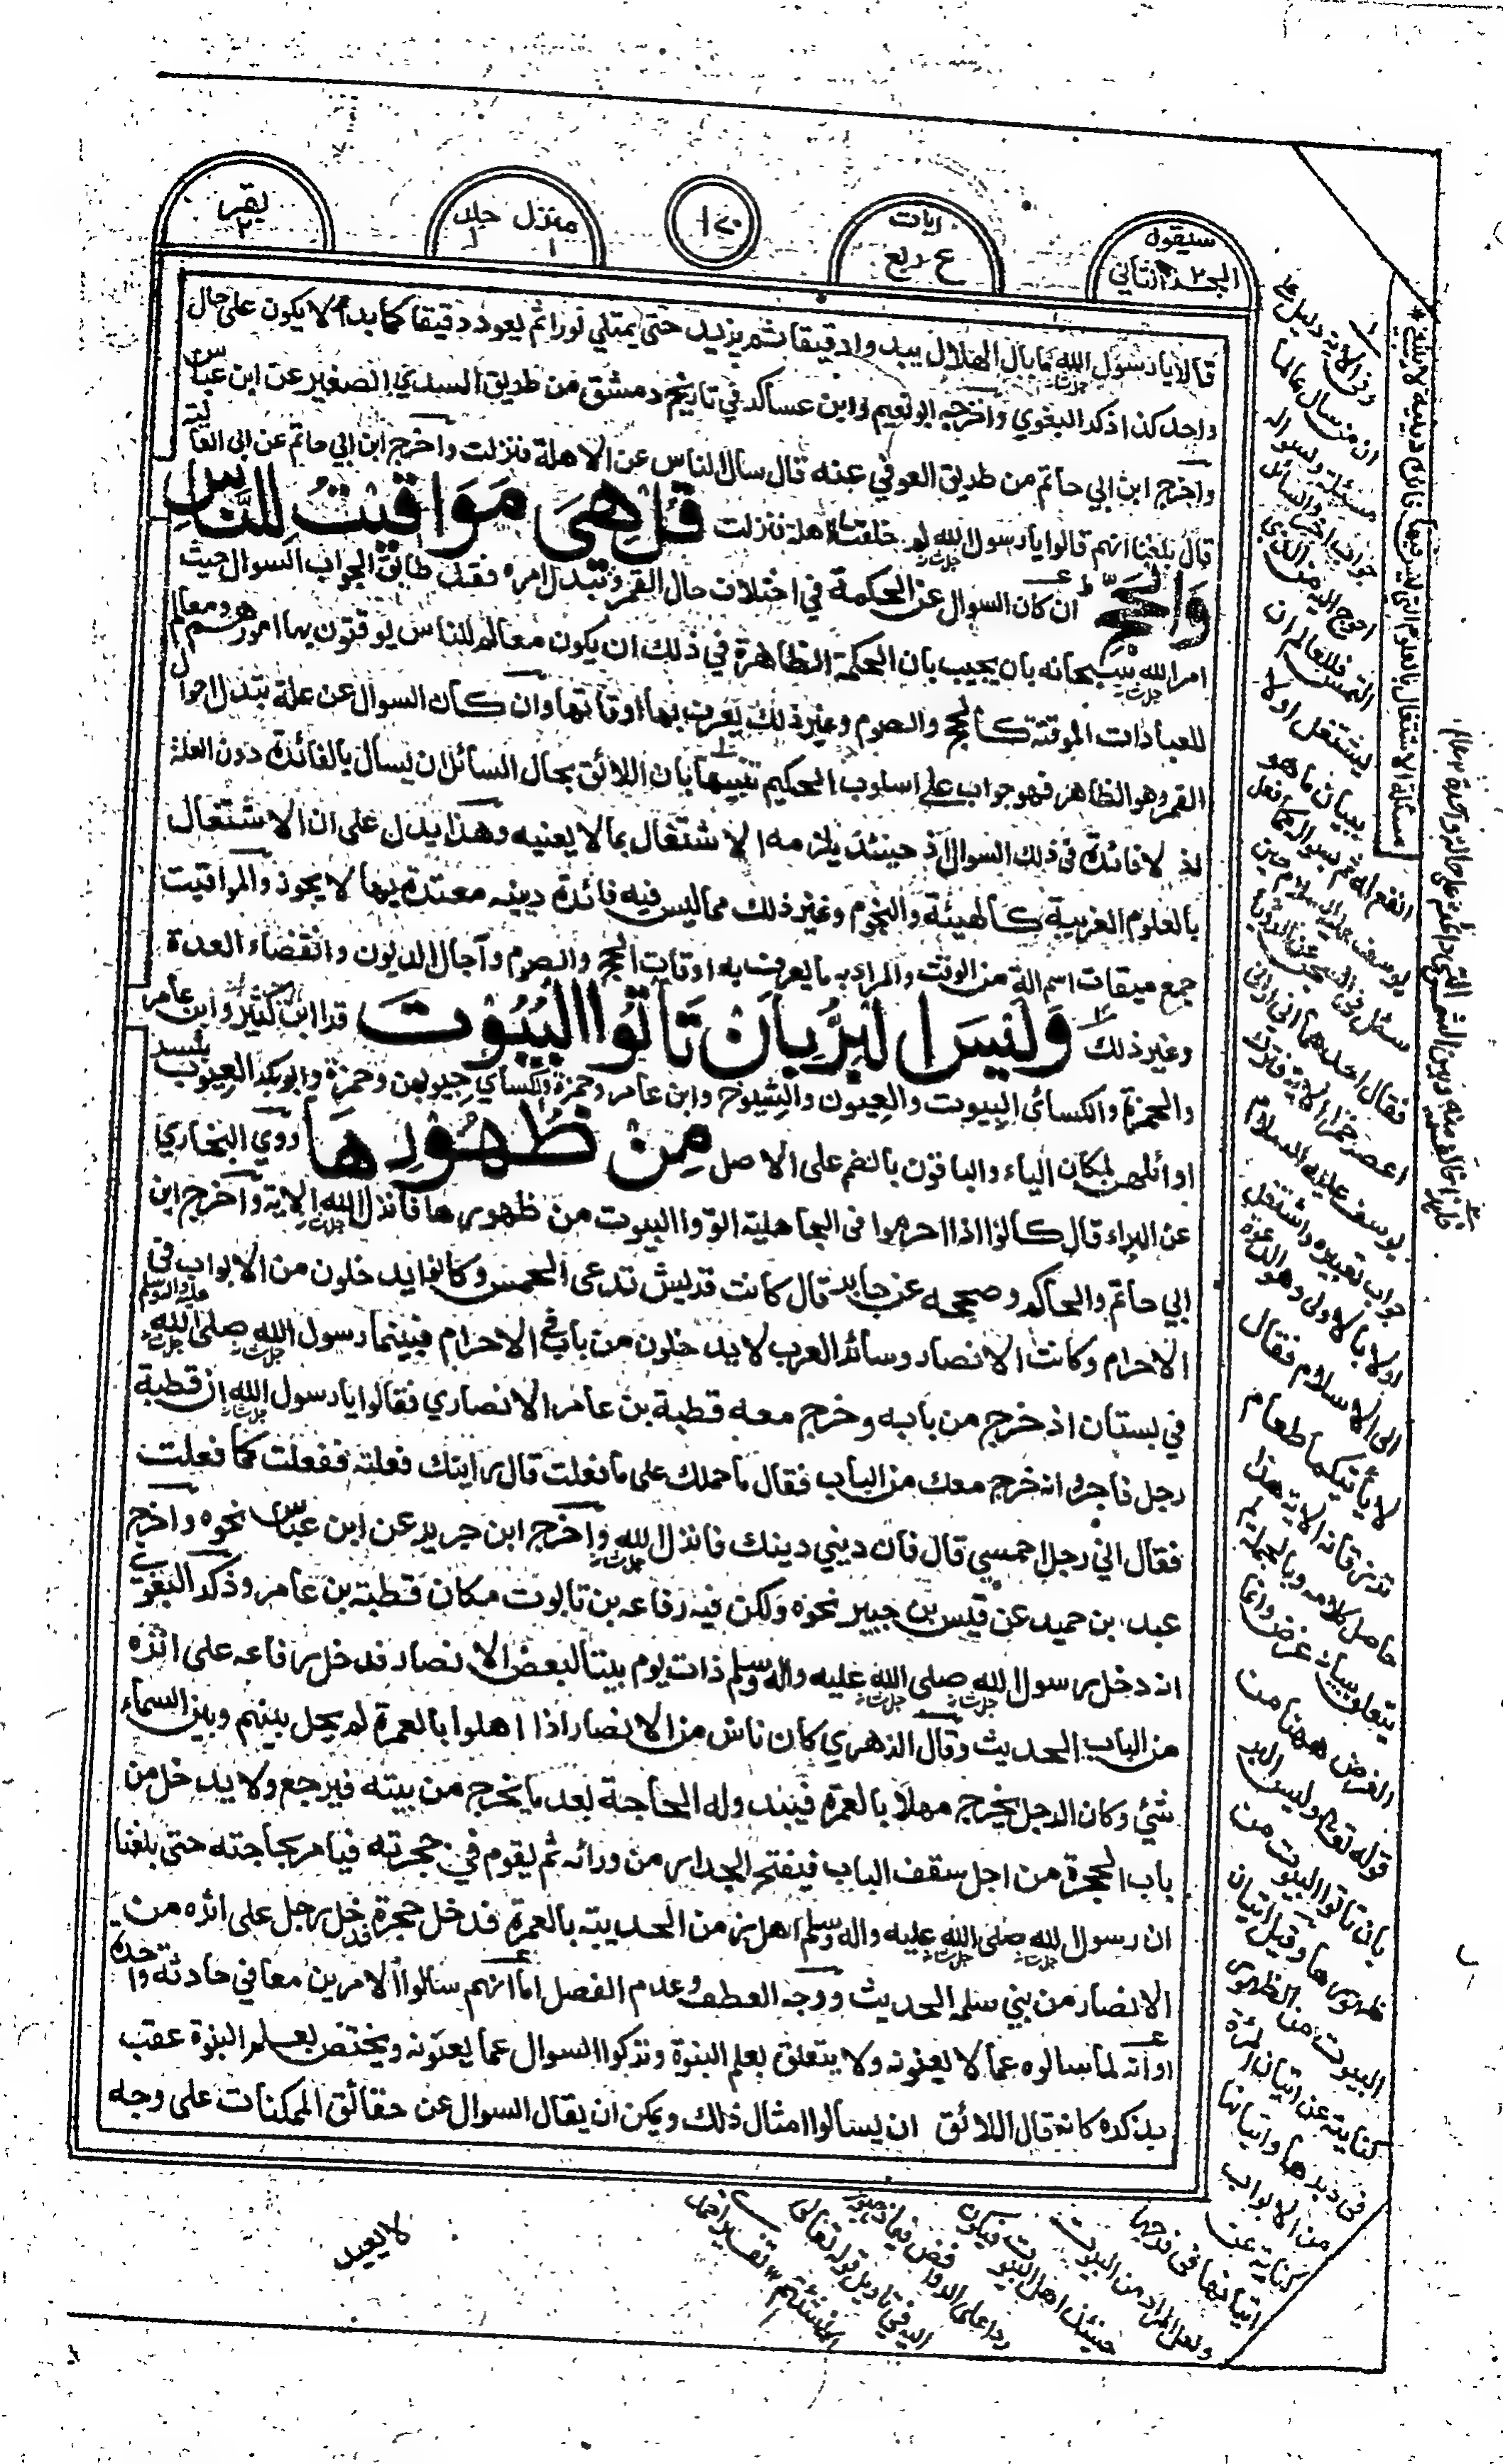 سيقول
الجزء الثاني
ربات
ع ربع
١٢٠
منزل جلد
١ ١
بقر
٢
قالا يا رسول الله ما بال الهلال يبدوا دقيقا ثم يزيد حتى يمتلي نورا ثم يعود دقيقا كما بدأ لا يكون على حال
واحد كذا ذكر البغوي واخرجه ابو نعيم وابن عساكر في تاريخ دمشق من طريق السدي الصغير عن ابن عباس
واخرج ابن ابي حاتم من طريق العوفي عنه قال سال الناس عن الاهلة فنزلت واخرج ابن ابي حاتم عن ابى العالية
قال بلغنا انهم قالوا يا رسول الله لم خلقت الاهلة فنزلت قُلْ هِىَ مَوَاقِيْتُ لِلنَّاسِ
وَالْحَجِّ ط ان كان السوال عن الحكمة في اختلاف حال القمر وتبدل امره فقد طابق الجواب السوال حيث
امر الله سبحانه بان يجيب بان الحكمة الظاهرة في ذلك ان يكون معالم للناس يوقتون بها امورهم ومعالم
للعبادات الموقتة كالحج والصوم وغير ذلك يعرف بها اوقاتها وان كان السوال عن علة تبدل احوال
القمر وهو الظاهر فهو جواب على اسلوب الحكيم تنبيها بان اللائق بحال السائل ان يسال بالفائدة دون العلة
اذ لا فائدة فى ذلك السوال اذ حينئذ يلزمه الاشتغال بما لا يعنيه وهذا يدل على ان الاشتغال
بالعلوم الغريبة كالهيئة والنجوم وغير ذلك مما ليس فيه فائدة دينيه معتدة بها لا يجوز والمواقيت
جمع ميقات اسم الة من الوقت والمراد به ما يعرف به اوقات الحج والصوم وآجال الديون وانقضاء العدة
وغير ذلك وَلَيْسَ الْبِرُّ بِاَنْ تَاْتُوا الْبُيُوْتَ قرا ابن كثير وابن عامر
والحمزة والكسائى البيوت والعيون والشيوخ وابن عامر وحمزة والكسائي جيوبهن وحمزة وابو بكر الغيوب بكسر
اوائلهن لمكان الياء والباقون بالضم على الاصل مِنْ ظُهُوْرِهَا روي البخاري
عن البراء قال كانوا اذا احرموا فى الجاهلية اتوا البيوت من ظهورها فانزل الله الاية واخرج ابن
ابي حاتم والحاكم وصححه عن جابر قال كانت قريش تدعى الحمس وكانوا يدخلون من الابواب فى
الاحرام وكانت الانصار وسائر العرب لا يدخلون من باب فى الاحرام فبينما رسول الله صلى الله عليه واله وسلم
في بستان اذ خرج من بابه وخرج معه قطبة بن عامر الانصاري فقالوا يا رسول الله ان قطبة
رجل فاجر وانه خرج معك من الباب فقال ما حملك على ما فعلت قال رايتك فعلته ففعلت كما فعلت
فقال اني رجل احمسي قال فان ديني دينك فانزل الله واخرج ابن جرير عن ابن عباس نحوه واخرج
عبد بن حميد عن قيس بن جبير نحوه ولكن فيه رفاعه بن تابوت مكان قطبة بن عامر وذكر البغوي
انه دخل رسول الله صلى الله عليه واله وسلم ذات يوم بيتا لبعض الانصار فدخل رفاعه على اثره
من الباب الحديث وقال الزهري كان ناس من الانصار اذا اهلوا بالعمرة لم يحل بينهم وبين السماء
شئي وكان الرجل يخرج مهلا بالعمرة فيبدو له الحاجة بعد ما يخرج من بيته فيرجع ولا يدخل من
باب الحجرة من اجل سقف الباب فيفتح الجدار من ورائه ثم يقوم في حجرته فيامر بحاجته حتى بلغنا
ان رسول الله صلى الله عليه واله وسلم اهل زمن الحديبية بالعمرة فدخل حجرة فدخل رجل على اثره من
الانصار من بني سلمه الحديث ووجه العطف وعدم الفصل اما انهم سالوا الامرين معا في حادثة واحدة
او انه لما سالوه عما لا يعنونه ولا يتعلق بعلم النبوة وتركوا السوال عما يعنونه ويختص بعلم النبوة عقب
بذكره كانه قال اللائق ان يسالوا امثال ذلك ويمكن ان يقال السوال عن حقائق الممكنات على وجه
مسئلة الاشتغال بالعلوم التى ليس فيها فائدة دينية لا ينبغي
يوسف عليه السلام حين
فقال احدهما انى ارانى
اعصر خمرا الاية فترك
يوسف عليه السلام
جواب تعبيره واشتغل
اولا بالاولى وهو الدعوة
الى الاسلام فقال
لا يأتيكما طعام
ترزقانه الاية هذا
حاصل كلامه وبالجملة لم
يتعلق ببيان غرض وانما
الغرض ههنا من
قوله تعالى وليس البر
بان تاتوا البيوت من
ظهورها وقيل اتيان
البيوت من الظهور
كناية عن اتيان المرأة
فى دبرها واتيانها
من الابواب
كناية عن
اتيانها في فرجها
لا يعيد